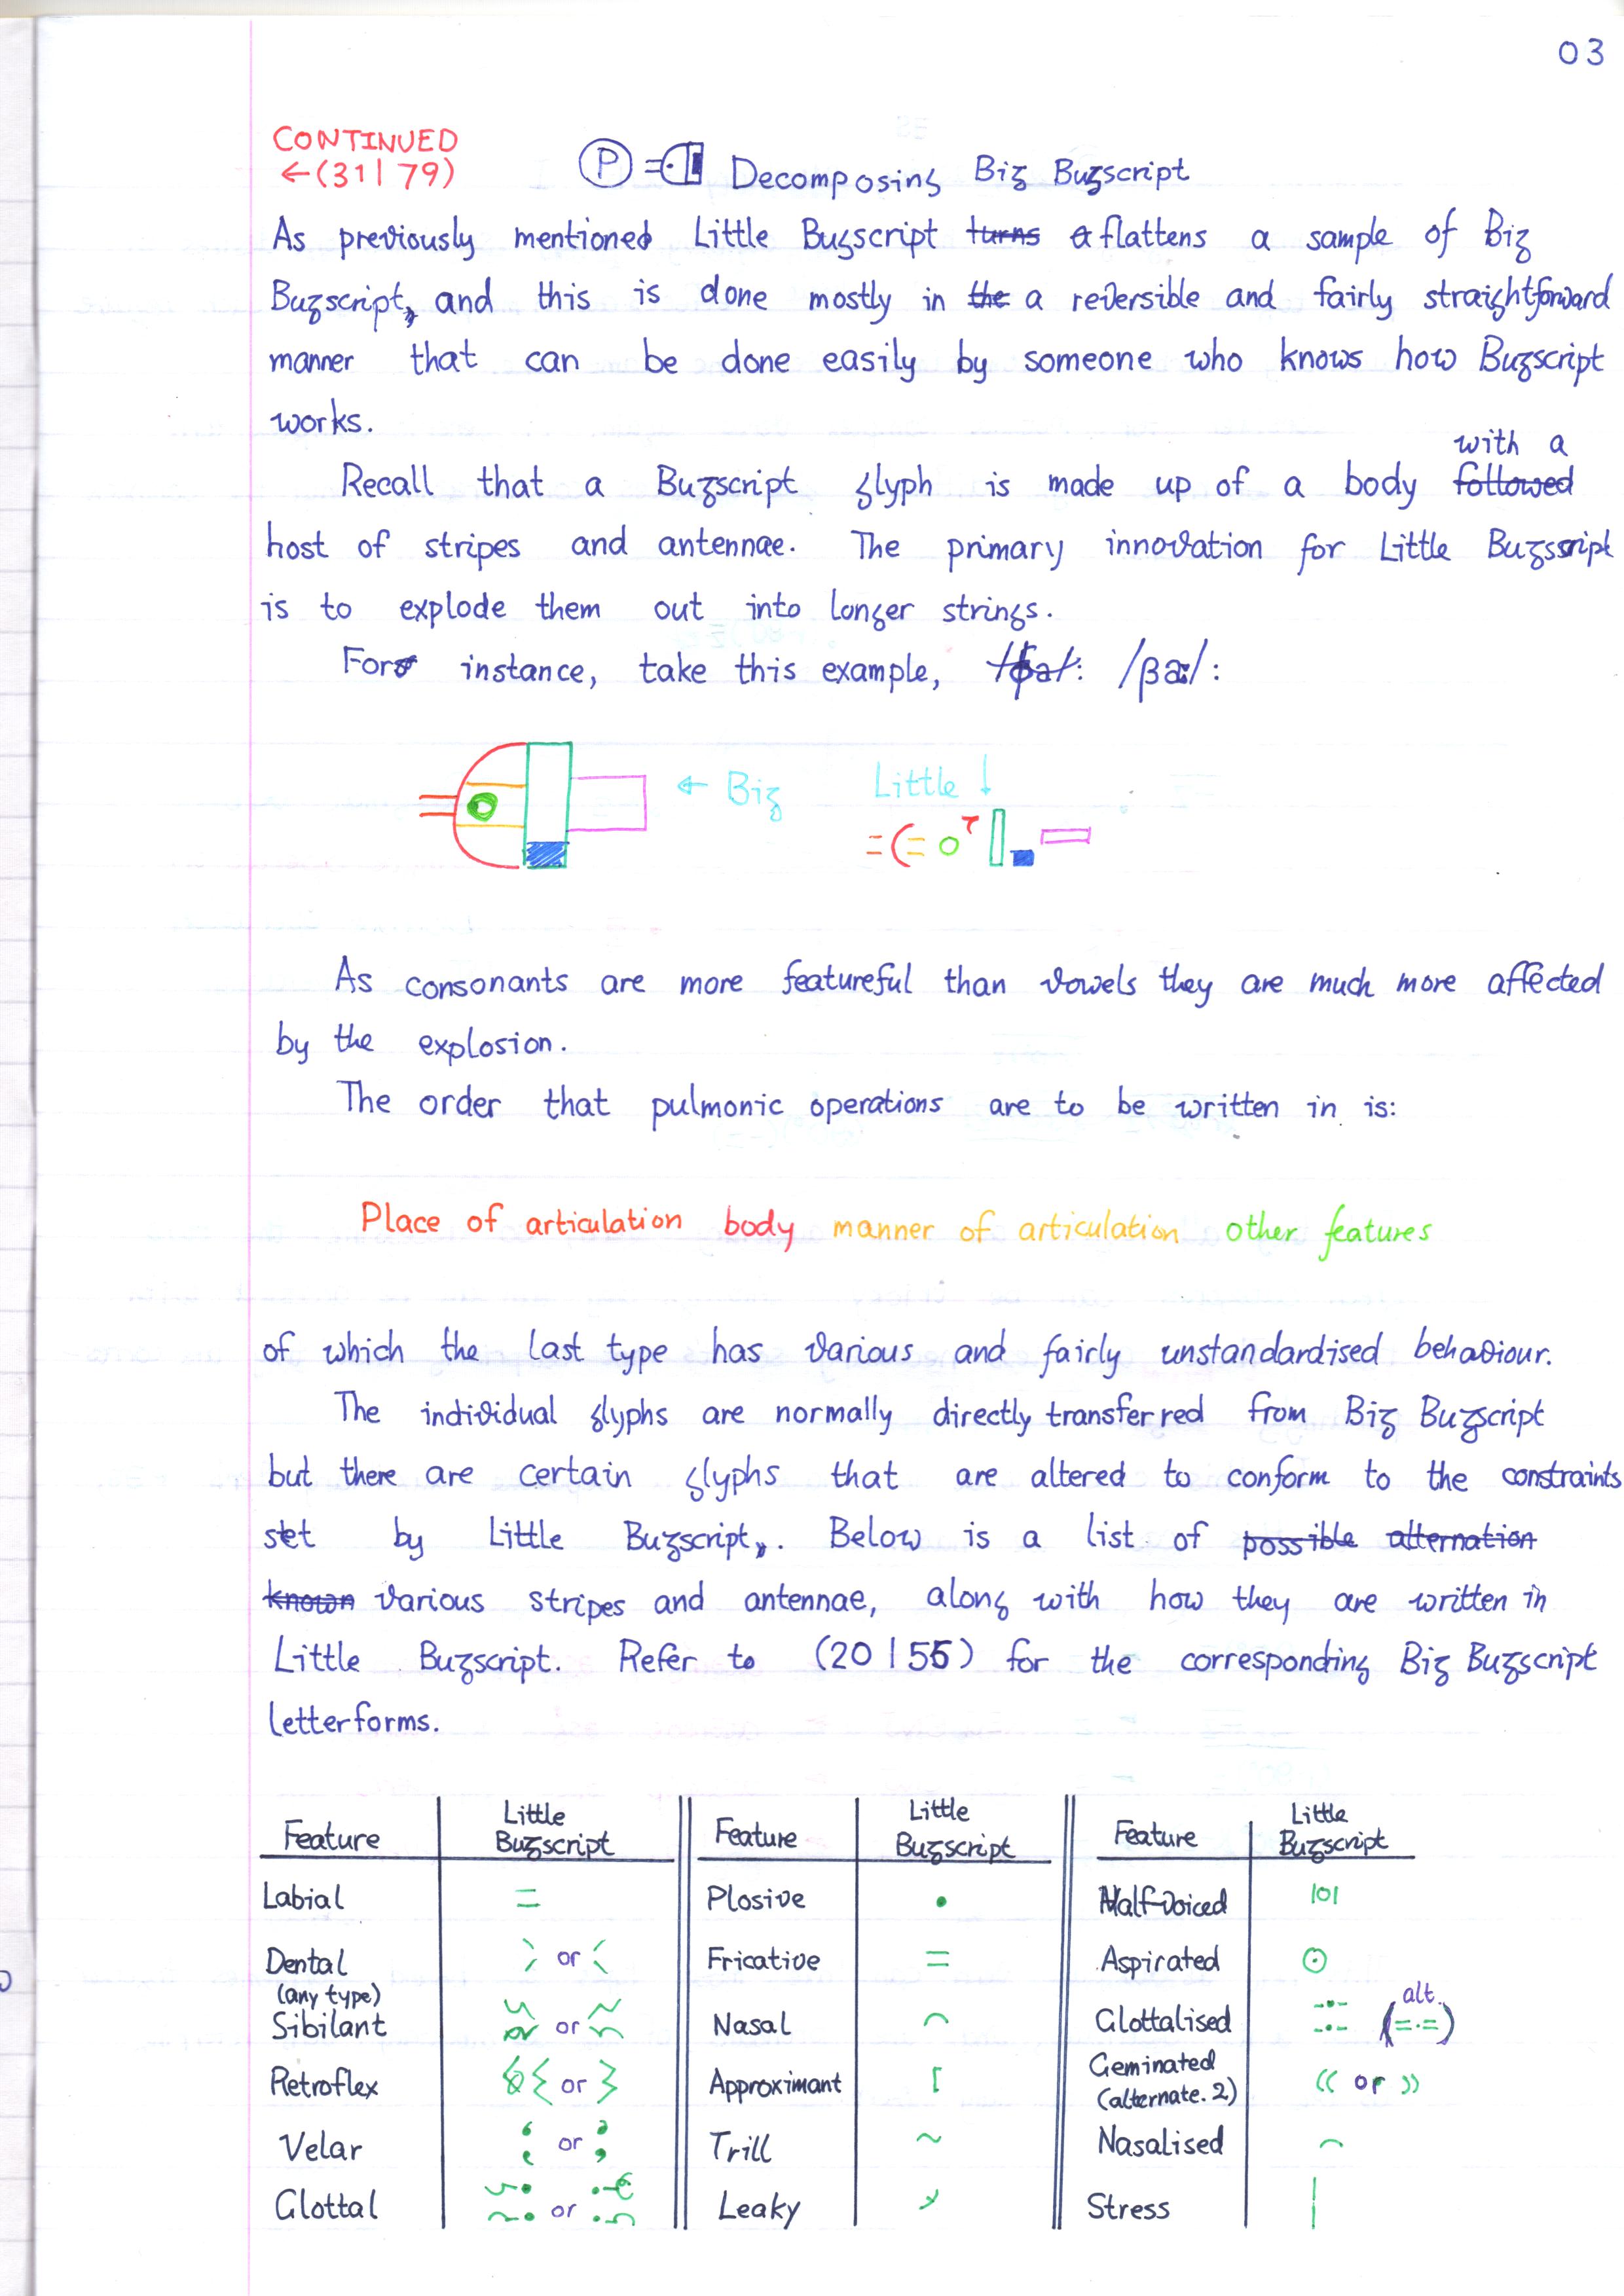 03
CONTINUED
←(31|79)
P Decomposing Big Bugscript
As previously mentioned Little Bugscript turns a flattens a sample of Big
Bugscript, and this is done mostly in the a reversible and fairly straightforward
manner that can be done easily by someone who knows how Bugscript
works.
with a
Recall that a Bugscript glyph is made up of a body followed
host of stripes and antennae. The primary innovation for Little Bugscript
is to explode them out into longer strings.
For instance, take this example, /βæ/:
← Big
Little ↓
As consonants are more featureful than vowels they are much more affected
by the explosion.
The order that pulmonic operations are to be written in is:
Place of articulation body manner of articulation other features
of which the last type has various and fairly unstandardised behaviour.
The individual glyphs are normally directly transferred from Big Bugscript
but there are certain glyphs that are altered to conform to the constraints
set by Little Bugscript. Below is a list of possible alternation
known various stripes and antennae, along with how they are written in
Little Bugscript. Refer to (20|55) for the corresponding Big Bugscript
letterforms.
Feature Little Bugscript Feature Little Bugscript Feature Little Bugscript
Labial = Plosive • Half-voiced |o|
Dental or Fricative = Aspirated ⊙
(any type)
Sibilant or Nasal ⌒ Glottalised alt. (=·=)
Retroflex or Approximant [ Geminated (alternate. 2) (( or ))
Velar or Trill ~ Nasalised ⌒
Glottal or Leaky Stress |